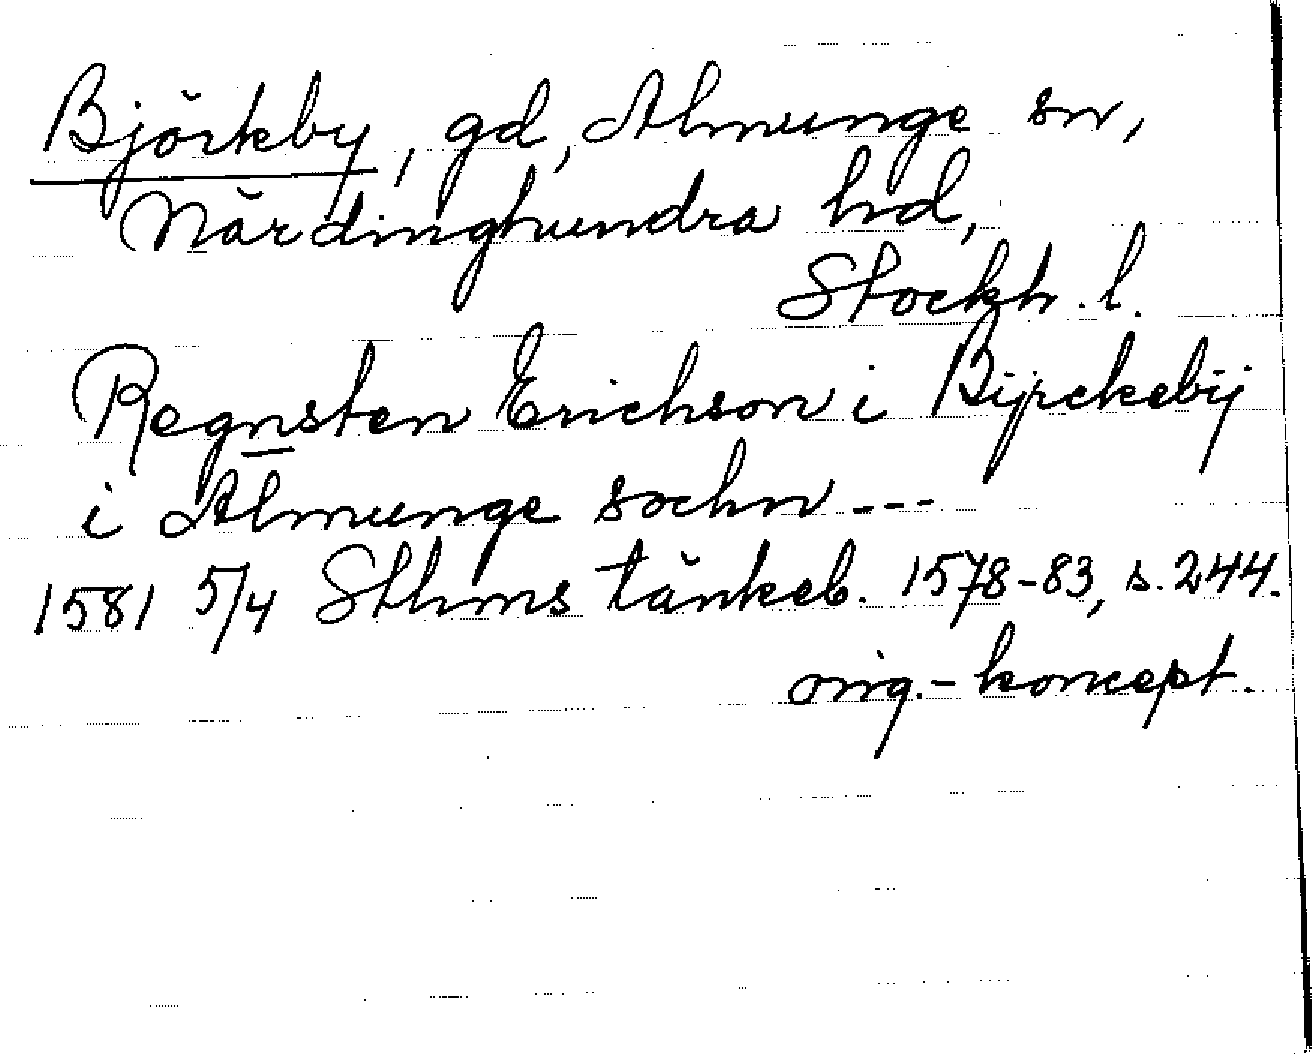 Björkeby, gd, Almunge sn,
Närdinghundra hd,
Stockh. l.
Regnsten Erichson i Bijrckebij
i Almunge sochn ---
1581 5/4 Sthms tänkeb. 1578-83, s. 244.
orig.-koncept.